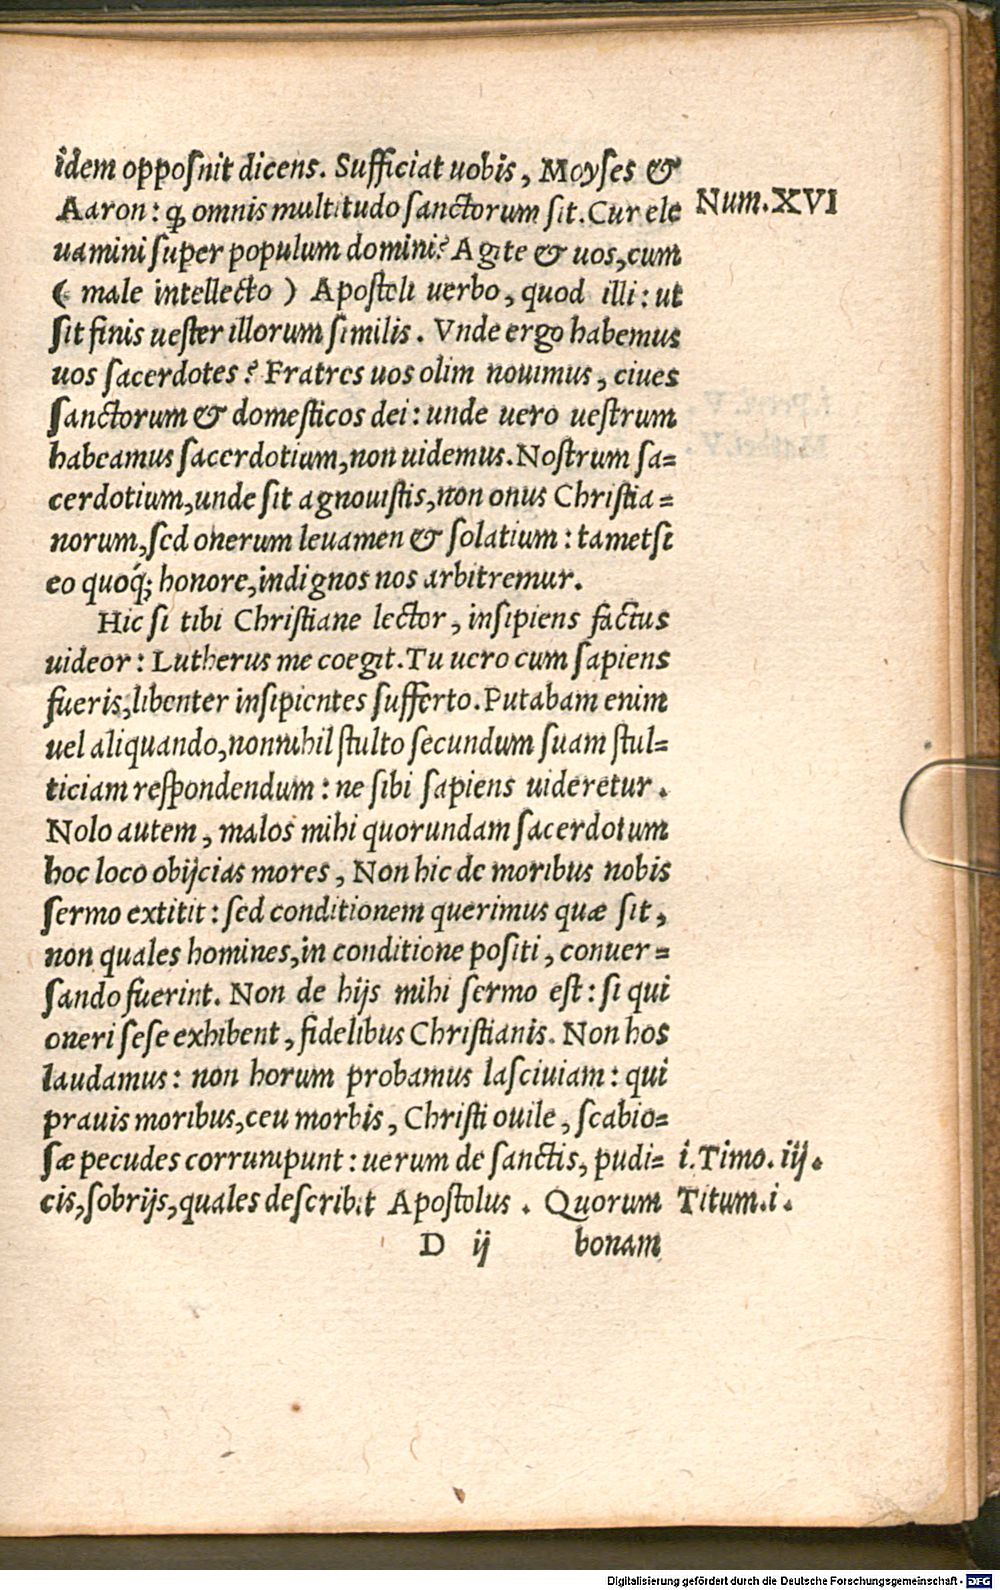 idem opposuit dicens. Sufficiat uobis, Moyses &
Aaron: ꝙ omnis multitudo sanctorum sit. Cur ele
Num. XVI
uamini super populum domini? Agite & uos, cum
( male intellecto ) Apostoli uerbo, quod illi: ut
sit finis uester illorum similis. Vnde ergo habemus
uos sacerdotes? Fratres uos olim nouimus, ciues
sanctorum & domesticos dei: unde uero uestrum
habeamus sacerdotium, non uidemus. Nostrum sa=
cerdotium, unde sit agnouistis, non onus Christia=
norum, sed onerum leuamen & solatium: tametsi
eo quoq́; honore, indignos nos arbitremur.
Hic si tibi Christiane lector, insipiens factus
uideor: Lutherus me coegit. Tu uero cum sapiens
fueris, libenter insipientes sufferto. Putabam enim
uel aliquando, nonnihil stulto secundum suam stul=
ticiam respondendum: ne sibi sapiens uideretur.
Nolo autem, malos mihi quorundam sacerdotum
hoc loco obijcias mores, Non hic de moribus nobis
sermo extitit: sed conditionem querimus quæ sit,
non quales homines, in conditione positi, conuer=
sando fuerint. Non de hijs mihi sermo est: si qui
oneri sese exhibent, fidelibus Christianis. Non hos
laudamus: non horum probamus lasciuiam: qui
prauis moribus, ceu morbis, Christi ouile, scabio=
sæ pecudes corrumpunt: uerum de sanctis, pudi=
i. Timo. iij.
cis, sobrijs, quales describit Apostolus. Quorum
Titum. i.
D ij bonam
Digitalisierung gefördert durch die Deutsche Forschungsgemeinschaft - DFG